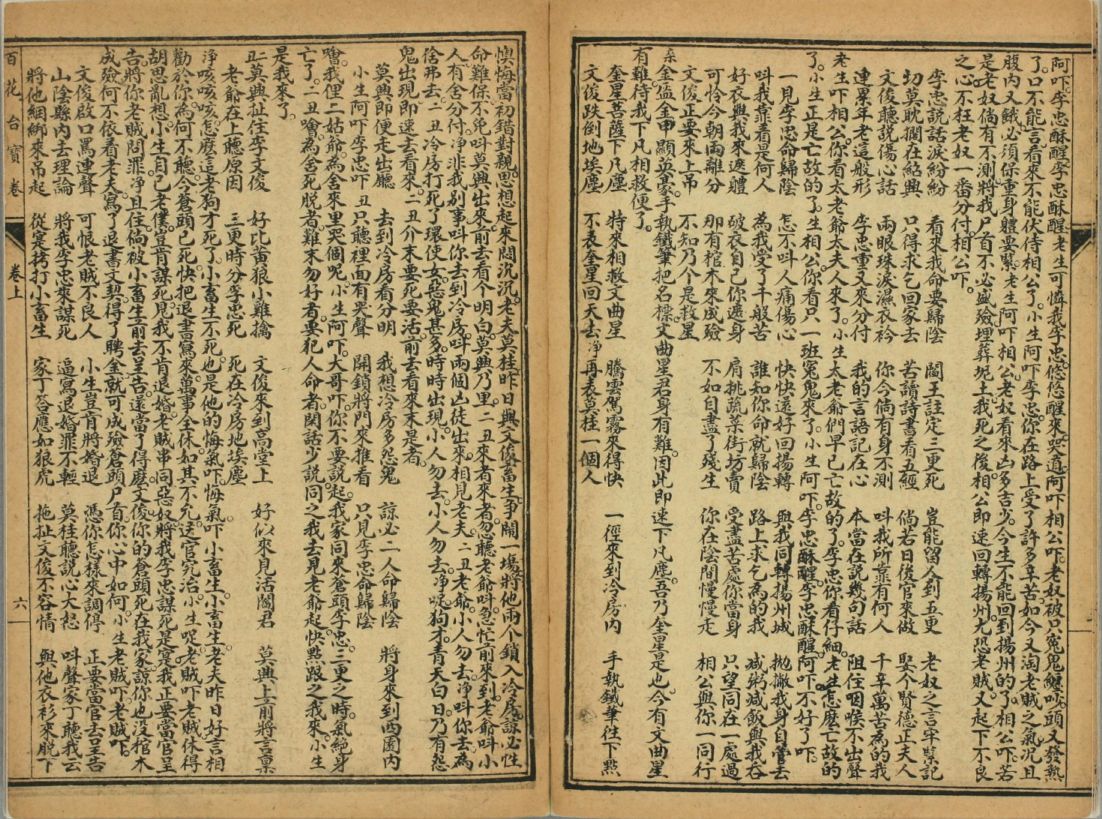 阿吓李忠酥醒李忠酥醒老生可憐我李忠悠悠醒來哭道阿吓相公吓老奴被只寃鬼纏吵頭又發熱
了口不能言看來不能伏侍相公了小生阿吓李忠吓你在路上受了許多辛苦如今又淘老賊之氣況且
股內又餓必須保重身軆要緊老生阿吓相公老奴看來凶多吉少今生不能回到揚州的了相公吓若
是老奴倘有不測將我尸首不必盛殮埋葬坭土我死之後相公即速回轉揚州尤恐老賊又起下不良
之心不枉老奴一番分付相公吓
李忠說話淚紛紛 看來我命要歸陰 閻王註定三更死 豈能留人到五更 老奴之言牢緊記
切莫耽擱在紹興 只得求乞回家去 苦讀詩書看五經 倘若日後官來做 娶个賢德正夫人
文俊聽說傷心話 兩眼珠淚濕衣衿 你今倘有身不測 呌我所靠有何人 千辛萬苦為的我
連累年老這般形 李忠重又來分付 我的言語記在心 本當在說幾句話 阻住咽喉不出聲
老生吓相公你看太老爺太夫人來了小生太老爺們早已亡故的了李忠你看仔細老生怎麼亡故的
了小生正是亡故的了生相公你看只一班寃鬼來了小生阿吓李忠酥醒李忠酥醒阿吓不好了吓
一見李忠命歸陰 怎不呌人痛傷心 快快還好回揚轉 與我同轉揚州城 拋撇我身自當去
呌我靠着是何人 為我受了千般苦 誰知你命就歸陰 路上求乞為的我 減粥減飯與我吞
好衣與我來遮體 破衣自己你遮身 肩挑蔬菜街坊賣 受盡苦處你當身 只望同在一處過
可怜今朝兩離分 那有棺木來盛殮 不如自盡了殘生 你在陰間慢慢走 相公與你一同行
文俊正要來上吊 不知乃个是救星
亲金盔金甲顯英豪手執鐵筆把名標文曲星君身有難因此即速下凡塵吾乃奎星是也今有文曲星
有難待我下凡相救便了
奎星菩薩下凡塵 特來相救文曲星 騰雲駕霧來得快 一徑來到冷房內 手執鐵筆往下點
文俊跌倒地埃塵 不表奎星回天去淨再表莫桂一個人
懊悔當初錯對親思想起來悶沉沉老夫莫桂昨日與文俊畜生爭鬧一塲將他兩个鎖入冷房諒必性
命難保不免呌莫興出來前去看个明白莫興乃里二丑來者來者忽聽老爺呌急忙前來到老爺呌小
人有舍分付淨非我别事呌你去到冷房呌兩個凶徒出來相見老夫二丑老爺小人勿去淨呌你去為
徣弗去二丑冷房打死了環使女惡鬼甚多時時出現小人勿去小人勿去淨唗狗才青天白日乃有怨
鬼出現即速去看來二丑介末要死要活前去看來末是者
莫興即便走出廳 去到冷房看分明 我想冷房多怨鬼 諒必二人命歸陰 將身來到西園內
小生阿吓李忠吓 丑只聽裡面有哭聲 開鎖將門來推看 只見李忠命歸陰
噲我俚二姑爺為舍來里哭個呢小生阿吓大哥吓你不要說起我家同來倉頭李忠三更之時氣絶身
亡了二丑噲為舍死脫者難末勿好者要犯人命者閑話少說同之我去見老爺起快點跟之我來小生
是我來了
丑莫興扯住李文俊 好比黃狼小雞擒 文俊來到高堂上 好似來見活閻君 莫興上前將言稟
老爺在上聽原因 三更時分李忠死 死在冷房地埃塵
淨咳咳咳怎麼這老狗才死了小畜生不死也是他的悔氣吓悔氣吓小畜生小畜生老夫昨日好言相
勸於你為何不聽今蒼頭已死快把退書寫來萬事全休如其不允送官究治小生呢老賊吓老賊休得
胡思亂想小生自己老僕豈肯謀死見我不肯退婚老賊串同惡奴將我李忠謀死是寔我正要當官呈
告將你老賊問罪淨且住倘被小畜生前去呈告還當了得麼文俊你的蒼頭死在我家諒你也没棺木
成殮何不依着老夫寫了退書文契得了聘金就可成殮蒼頭尸首你心中如何小生老賊吓老賊吓
文俊啟口罵連聲 可恨老賊不良人 小生豈肯將婚退 憑你怎樣來調停 正要當官去呈告
山陰縣内去理論 將我李忠來謀死 逼寫退婚罪不輕 莫桂聽說心大怒 呌聲家丁聽我云
將他綑綁來吊起 從寔拷打小畜生 家丁答應如狼虎 拖扯文俊不容情 與他衣衫來脫下
百花台寳卷
卷上
六